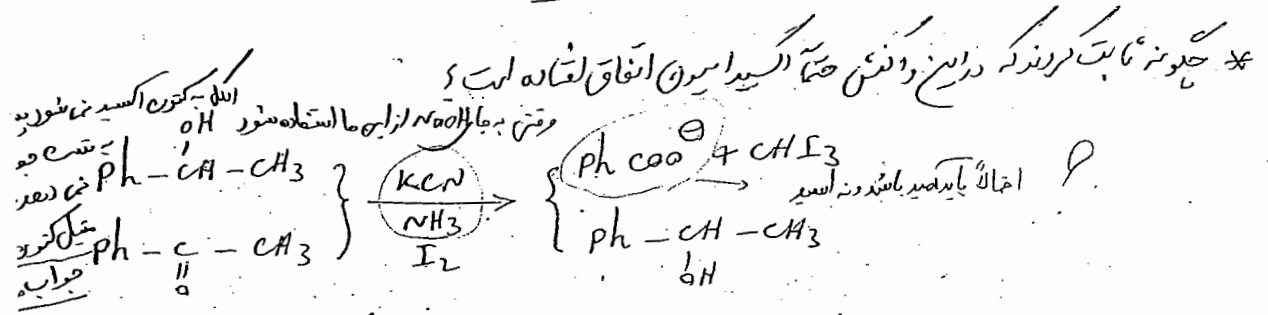 * چگونه ثابت کردند که در این واکنش حتماً اکسیداسیون اتفاق افتاده است؟
وقتی به جای NaOH از این ها استفاده شود الکل به کتون اکسید نمی شود
به تست
نمی دهد
متیل کتون
جواب
OH
Ph – CH – CH3
Ph – C – CH3
O
KCN
NH3
I2
Ph COO⊖ + CHI3
احتمالاً باید آمید باشد و نه اسید
؟
Ph – CH – CH3
OH